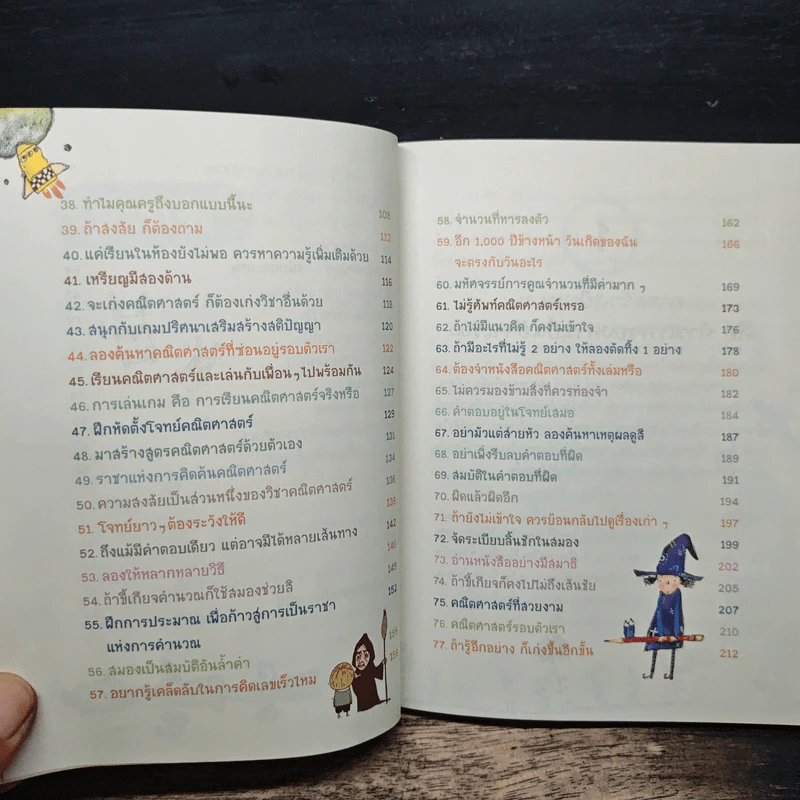 38. ทำไมคุณครูถึงบอกแบบนี้นะ 108
39. ถ้าสงสัย ก็ต้องถาม 112
40. แค่เรียนในห้องยังไม่พอ ควรหาความรู้เพิ่มเติมด้วย 114
41. เหรียญมีสองด้าน 116
42. จะเก่งคณิตศาสตร์ ก็ต้องเก่งวิชาอื่นด้วย 118
43. สนุกกับเกมปริศนาเสริมสร้างสติปัญญา 120
44. ลองค้นหาคณิตศาสตร์ที่ซ่อนอยู่รอบตัวเรา 122
45. เรียนคณิตศาสตร์และเล่นกับเพื่อนๆไปพร้อมกัน 124
46. การเล่นเกม คือ การเรียนคณิตศาสตร์จริงหรือ 127
47. ฝึกหัดตั้งโจทย์คณิตศาสตร์ 129
48. มาสร้างสูตรคณิตศาสตร์ด้วยตัวเอง 131
49. ราชาแห่งการคิดค้นคณิตศาสตร์ 134
50. ความสงสัยเป็นส่วนหนึ่งของวิชาคณิตศาสตร์ 136
51. โจทย์ยาวๆต้องระวังให้ดี 139
52. ถึงแม้มีคำตอบเดียว แต่อาจมีได้หลายเส้นทาง 142
53. ลองให้หลากหลายวิธี 146
54. ถ้าขี้เกียจคำนวณก็ใช้สมองช่วยสิ 149
55. ฝึกการประมาณ เพื่อก้าวสู่การเป็นราชา 152
แห่งการคำนวณ
56. สมองเป็นสมบัติอันล้ำค่า 155
57. อยากรู้เคล็ดลับในการคิดเลขเร็วไหม 158
58. จำนวนที่หารลงตัว 162
59. อีก 1,000 ปีข้างหน้า วันเกิดของฉัน 166
จะตรงกับวันอะไร
60. มหัศจรรย์การคูณจำนวนที่มีค่ามากๆ 169
61. ไม่รู้ศัพท์คณิตศาสตร์เหรอ 173
62. ถ้าไม่มีแนวคิด ก็คงไม่เข้าใจ 176
63. ถ้ามีอะไรที่ไม่รู้ 2 อย่าง ให้ลองตัดทิ้ง 1 อย่าง 178
64. ต้องจำหนังสือคณิตศาสตร์ทั้งเล่มหรือ 180
65. ไม่ควรมองข้ามสิ่งที่ควรท่องจำ 182
66. คำตอบอยู่ในโจทย์เสมอ 184
67. อย่ามัวแต่ส่ายหัว ลองค้นหาเหตุผลดูสิ 187
68. อย่าเพิ่งรีบลบคำตอบที่ผิด 189
69. สมบัติในคำตอบที่ผิด 191
70. ผิดแล้วผิดอีก 194
71. ถ้ายังไม่เข้าใจ ควรย้อนกลับไปดูเรื่องเก่าๆ 197
72. จัดระเบียบลิ้นชักในสมอง 199
73. อ่านหนังสืออย่างมีสมาธิ 202
74. ถ้าขี้เกียจก็คงไปไม่ถึงเส้นชัย 205
75. คณิตศาสตร์ที่สวยงาม 207
76. คณิตศาสตร์รอบตัวเรา 210
77. ถ้ารู้อีกอย่าง ก็เก่งขึ้นอีกขั้น 212